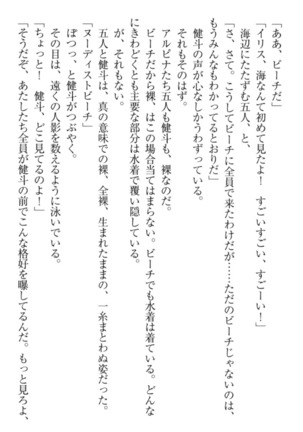 「ああ、ビーチだ」
「イリス、海なんて初めて見たよ！　すごいすごい、すごーい！」
海辺にたたずむ五人、と、
「さ、さて。こうしてビーチに全員で来たわけだが……ただのビーチじゃないのは、
もうみんなもわかってるとおりだ」
健斗の声が心なしかうわずっている。
それもそのはず。
アルビナたち五人も健斗も、裸なのだ。
ビーチだから裸、はこの場合当てはまらない。ビーチでも水着は着ている。どんな
にきわどくとも主要な部分は水着で覆い隠している。
が、それもない。
五人と健斗は、真の意味での裸、全裸、生まれたままの、一糸まとわぬ姿だった。
「ヌーディストビーチ」
ぽつっ、と健斗がつぶやく。
その目は、遠くの人影を数えるように泳いでいる。
「ちょっと！　健斗、どこ見てるのよ！」
「そうだぞ、あたしたち全員が健斗の前でこんな格好を曝してるんだ。もっと見ろよ、